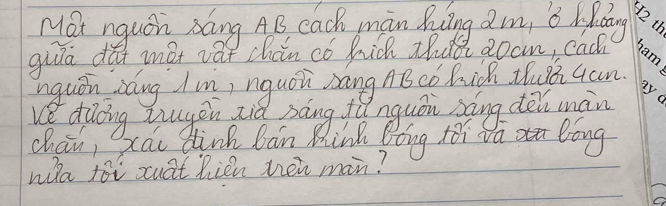 Một nguồn sáng AB cách màn hứng 2m, ở khoảng
giữa đặt một vật chắn có kích thước 20cm, cách
nguồn sáng 1m, nguồn sáng AB có kích thước 4cm.
Vẽ đường truyền tia sáng từ nguồn sáng đến màn
chắn, xác định bán kính bóng tối và bóng
nửa tối xuất hiện trên màn?
H2 th
ham
ay d